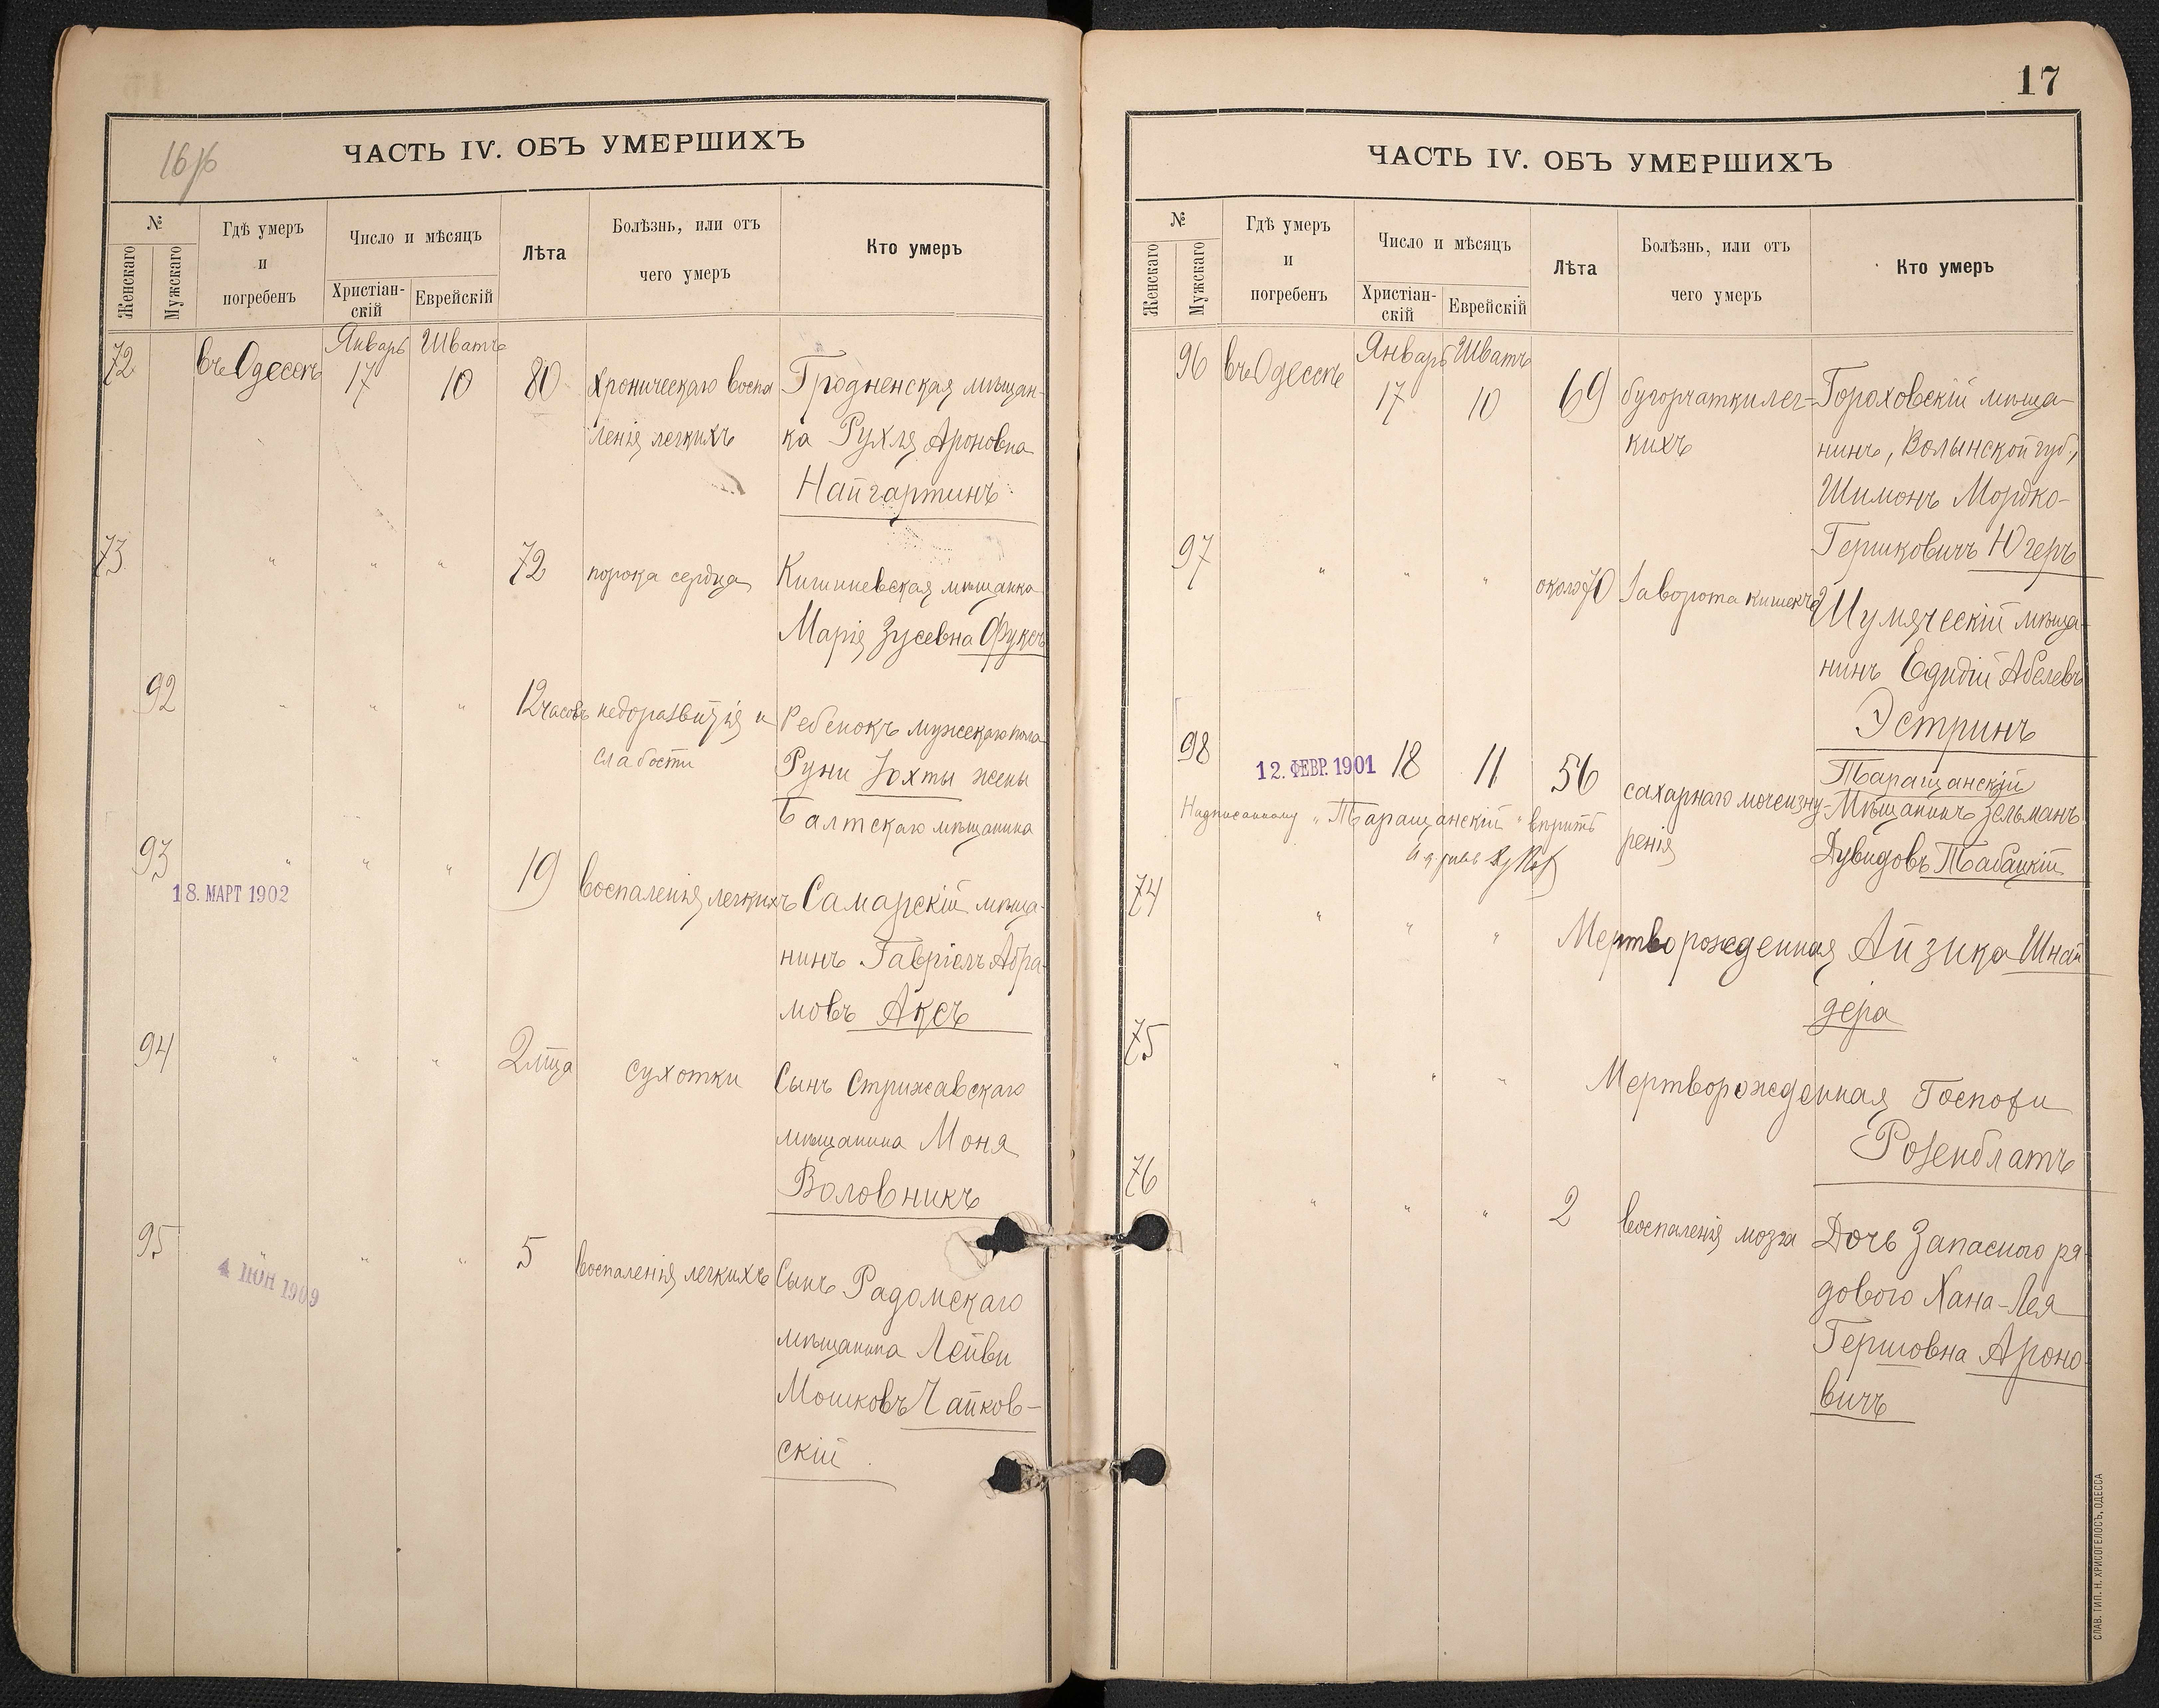 16
ЧАСТЬ IV. ОБЪ УМЕРШИХЪ
№
Женскаго
Мужскаго
Гдѣ умеръ
и
погребенъ
Число и мѣсяцъ
Христіан-
скій
Еврейскій
Лѣта
Болѣзнь, или отъ
чего умеръ
Кто умеръ
Январь Шватъ
72 въ Одессѣ 17 10 80 хроническаго воспа Гродненская мѣщан-
ленія легкихъ ка Рухля Ароновна
Найгартинъ
73 " " " 72 порока сердца Кишиневская мѣщанка
Марія Зусевна Фуксъ
92 " " " 12 часовъ недоразвитія и Ребенокъ мужскаго пола
слабости Руни Юхты жены
Балтскаго мѣщанина
93 " " " 19 воспаленія легкихъ Самарскій мѣща-
18. МАРТ 1902
нинъ Гавріелъ Абра-
мовъ Аксъ
94 " " " 2 м-ца сухотки Сынъ Стрижавскаго
мѣщанина Моня
Воловникъ
95 " " " 5 воспаленія легкихъ Сынъ Радомскаго
4 ІЮН 1909
мѣщанина Лейви
Мошковъ Чайков-
скій
17
ЧАСТЬ IV. ОБЪ УМЕРШИХЪ
№
Женскаго
Мужскаго
Гдѣ умеръ
и
погребенъ
Число и мѣсяцъ
Христіан-
скій
Еврейскій
Лѣта
Болѣзнь, или отъ
чего умеръ
Кто умеръ
Январь Шватъ
96 въ Одессѣ 17 10 69 бугорчатки лег- Гороховскій мѣща-
кихъ нинъ, Волынской губ.,
Шимонъ Мордко-
Гершковичъ Югеръ
97 " " " около 70 заворота кишекъ Шумячскій мѣща-
нинъ Едидій Абелевъ
Эстринъ
98 12. ФЕВР. 1901 18 11 56 сахарнаго мочеизну- Таращанскій
Мѣщанинъ Зельманъ
Надписанному "Таращанскій" вѣрить
ренія Дувидовъ Табацкій
74 " " " Мертворожденная Айзика Шнай
дера
75 " " " Мертворожденная Госпожи
Розенблатъ
76 " " " 2 воспаленія мозга Дочь Запаснаго ря-
дового Хана-Лея
Гершовна Ароно-
вичъ
СЛАВ. ТИП. Н. ХРИСОГЕЛОСЪ, ОДЕССА